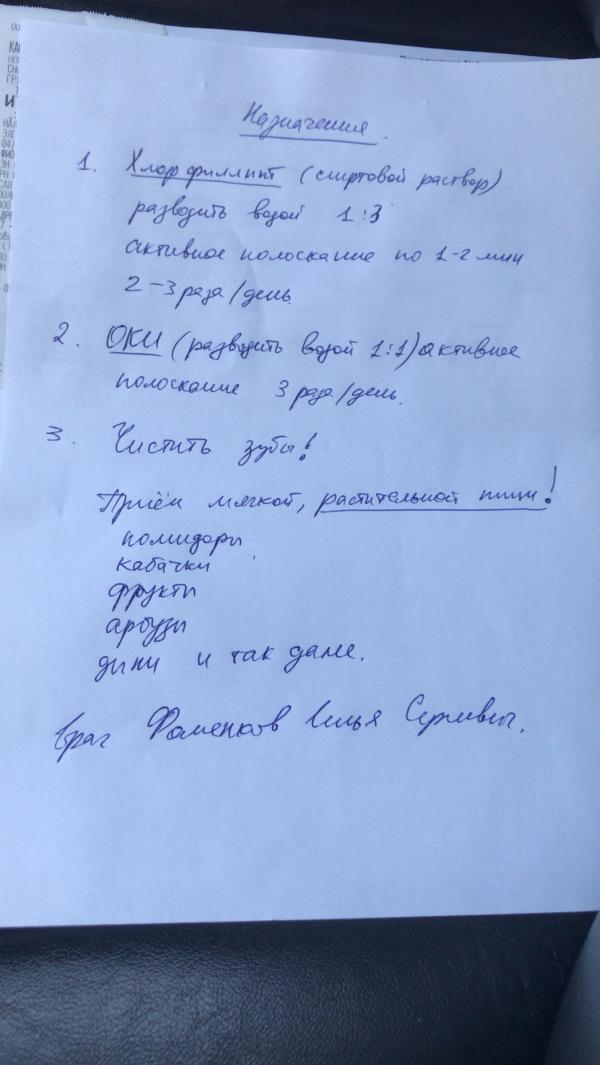 Назначения.
1. Хлорфиллипт (спиртовой раствор)
разводить водой 1:3
активное полоскание по 1-2 мин
2-3 раза/день.
2. ОКИ (разводить водой 1:1) активное
полоскание 3 раза/день.
3. Чистить зубы!
Приём мягкой, растительной пищи!
помидоры
кабачки
фрукты
арбузы
дыни и так далее.
Врач Илья